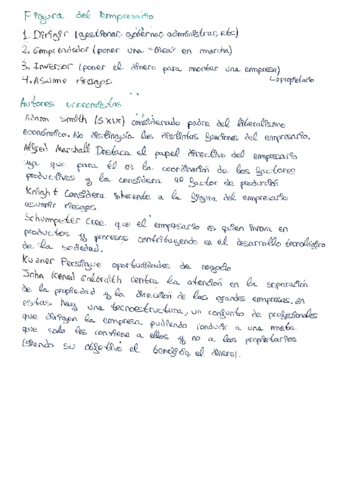 Figura del empresario
1. Dirigir (gestionar, gobernar, administrar, etc)
2. Emprendedor (poner una idea en marcha)
3. Inversor (poner el dinero para montar una empresa)
↳ propietario
4. Asume riesgos
Autores economistas
Adam Smith (SXIX) considerado padre del liberalismo
económico. No distinguía las distintas funciones del empresario.
Alfred Marshall Destaca el papel directivo del empresario
ya que para él es la coordinación de los factores
productivos y la considera 4º factor de producción
Knight Considera inherente a la figura del empresario
asumir riesgos
Schumpeter Cree que el empresario es quien innova en
productos y procesos contribuyendo en el desarrollo tecnológico
de la sociedad.
Kizner Persigue oportunidades de negocio
John Kened Galbraith centra la atención en la separación
de la propiedad y la dirección de las grandes empresas, en
estas hay una tecnoestructura, un conjunto de profesionales
que dirigen la empresa pudiendo conducir a una meta
que solo les conviene a ellos y no a los propietarios
(siendo su objetivo el beneficio, el dinero).